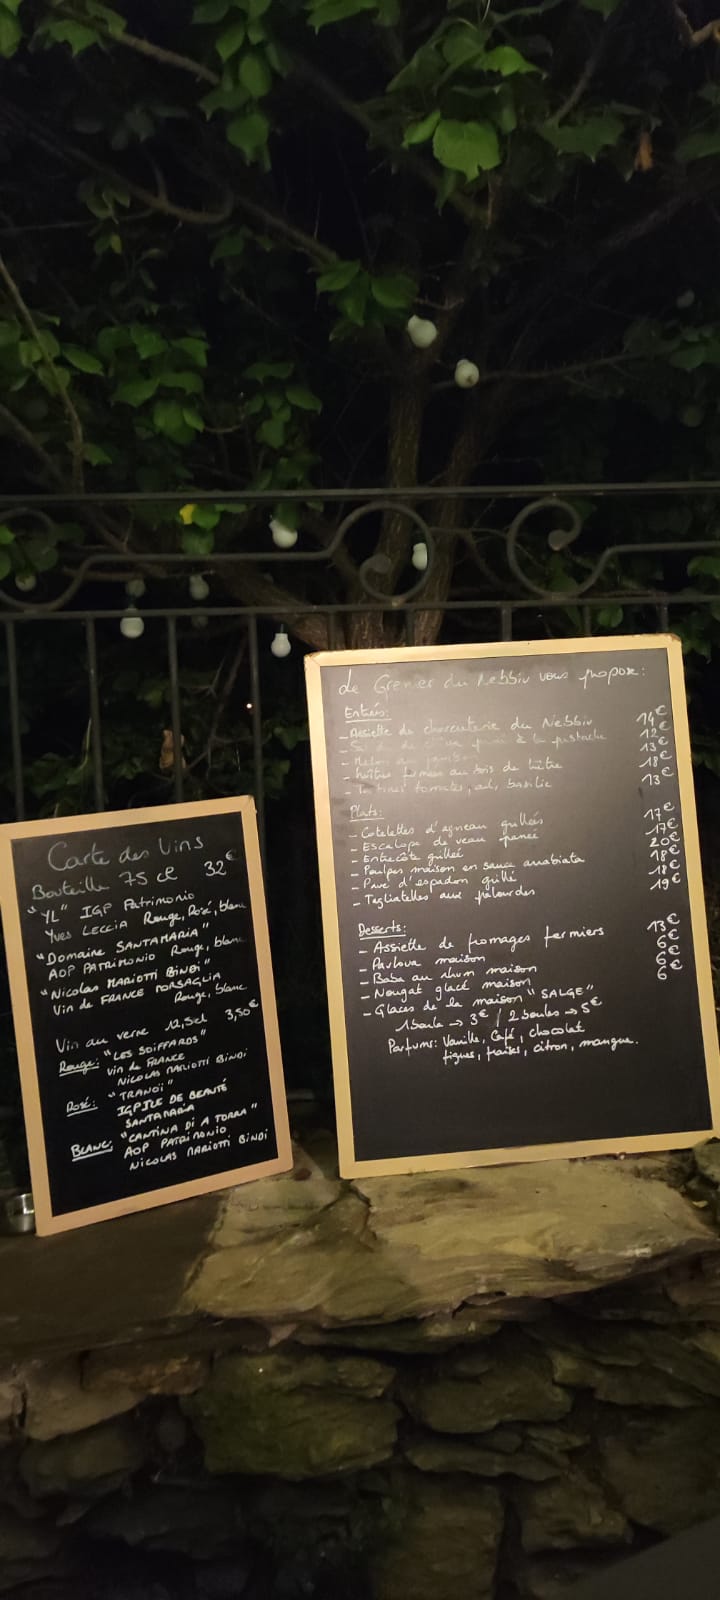 Carte des Vins
Bouteille 75 cl 32€
"YL" IGP Patrimonio
Yves LECCIA Rouge, Rosé, blanc
"Domaine SANTAMARIA"
AOP PATRIMONIO Rouge, blanc
"Nicolas MARIOTTI BINDI"
Vin de FRANCE
Rouge, blanc
Vin au verre 12,5cl 3,50€
Rouge: "LES SOIFFARDS"
Vin de FRANCE
NICOLAS MARIOTTI BINDI
Rosé: "TRANOI"
IGP ILE DE BEAUTÉ
SANTAMARIA
BLANC: "CANTINA DI A TORRA"
AOP PATRIMONIO
NICOLAS MARIOTTI BINDI
Le Grenier du Nebbiu vous propose:
Entrées:
- Assiette de charcuterie du Nebbiu 14€
- à la pistache 12€
- Melon au jambon 13€
- Huîtres au bois de hêtre 18€
- tomates, ail, basilic 13€
Plats:
- Cotelettes d'agneau grillées 17€
- Escalope de veau panée 17€
- Entrecôte grillée 20€
- Poulpes maison en sauce arrabiata 18€
- Pavé d'espadon grillé 18€
- Tagliatelles aux palourdes 19€
Desserts:
- Assiette de fromages fermiers 13€
- Pavlova maison 6€
- Baba au rhum maison 6€
- Nougat glacé maison 6€
- Glaces de la maison "SALGE"
1 boule → 3€ / 2 boules → 5€
Parfums: Vanille, Café, chocolat
figues, fraises, citron, mangue.